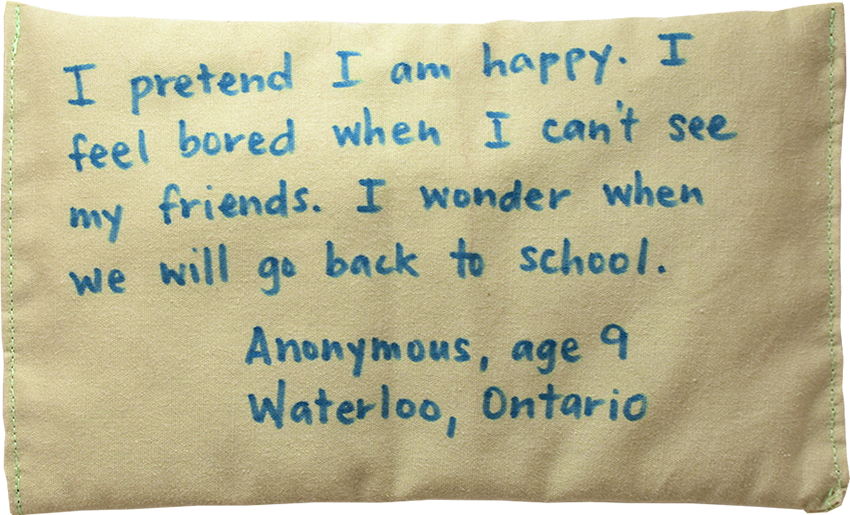 I pretend I am happy. I
feel bored when I can't see
my friends. I wonder when
we will go back to school.
Anonymous, age 9
Waterloo, Ontario